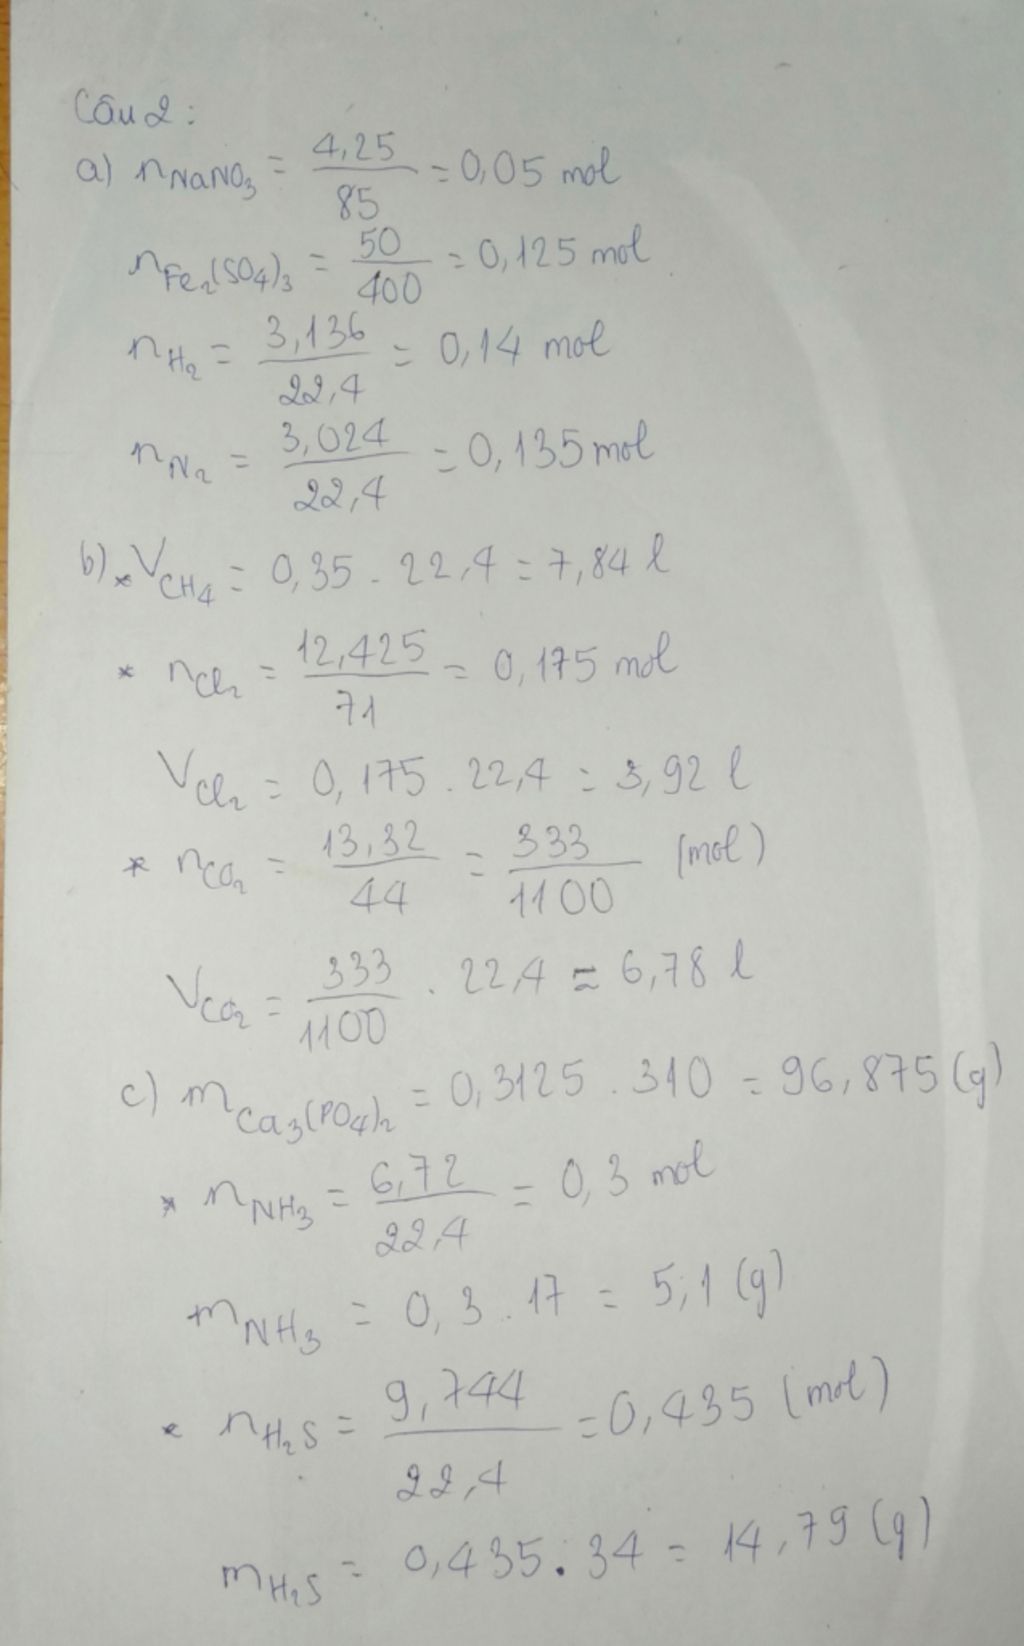 Câu 2:
a) nNaNO3 = 4,25/85 = 0,05 mol
nFe2(SO4)3 = 50/400 = 0,125 mol
nH2 = 3,136/22,4 = 0,14 mol
nN2 = 3,024/22,4 = 0,135 mol
b) * VCH4 = 0,35 . 22,4 = 7,84 l
* nCl2 = 12,425/71 = 0,175 mol
VCl2 = 0,175 . 22,4 = 3,92 l
* nCO2 = 13,32/44 = 333/1100 (mol)
VCO2 = 333/1100 . 22,4 ≈ 6,78 l
c) mCa3(PO4)2 = 0,3125 . 310 = 96,875 (g)
* nNH3 = 6,72/22,4 = 0,3 mol
mNH3 = 0,3 . 17 = 5,1 (g)
* nH2S = 9,744/22,4 = 0,435 (mol)
mH2S = 0,435 . 34 = 14,79 (g)